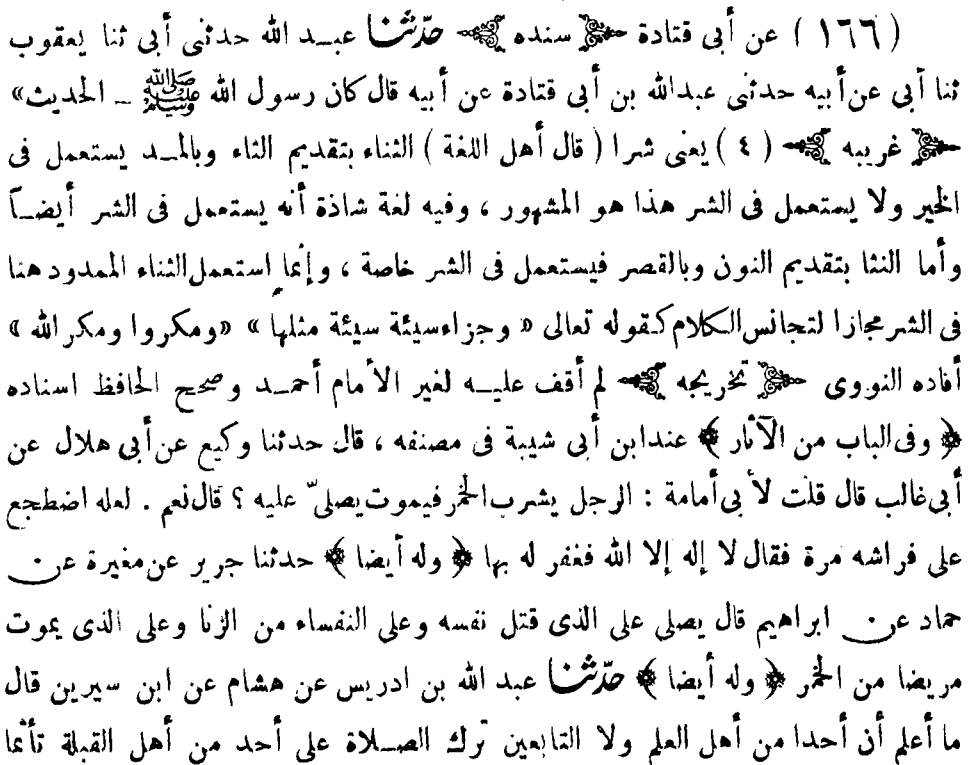 (١٦٦) عن أبى قتادة ﴿ سنده ﴾ حدّثنا عبد الله حدثنى أبى ثنا يعقوب
ثنا أبى عن أبيه حدثنى عبد الله بن أبى قتادة عن أبيه قال كان رسول الله ﷺ ـ الحديث»
﴿ غريبه ﴾ (٤) يعنى شرا (قال أهل اللغة) الثناء بتقديم الثاء وبالمد يستعمل فى
الخير ولا يستعمل فى الشر هذا هو المشهور ، وفيه لغة شاذة أنه يستعمل فى الشر أيضاً
وأما النثا بتقديم النون وبالقصر فيستعمل فى الشر خاصة ، وإنما استعمل الثناء الممدود هنا
فى الشر مجازا لتجانس الكلام كقوله تعالى « وجزاء سيئة سيئة مثلها » «ومكروا ومكر الله »
أفاده النووى ﴿ تخريجه ﴾ لم أقف عليه لغير الأمام أحمد وصحح الحافظ اسناده
﴿ وفى الباب من الآثار ﴾ عند ابن أبى شيبة فى مصنفه ، قال حدثنا وكيع عن أبى هلال عن
أبى غالب قال قلت لأبى أمامة : الرجل يشرب الخمر فيموت يصلىّ عليه ؟ قال نعم . لعله اضطجع
على فراشه مرة فقال لا إله إلا الله فغفر له بها ﴿ وله أيضا ﴾ حدثنا جرير عن مغيرة عن
حماد عن ابراهيم قال يصلى على الذى قتل نفسه وعلى النفساء من الزنا وعلى الذى يموت
مريضا من الخمر ﴿ وله أيضا ﴾ حدّثنا عبد الله بن ادريس عن هشام عن ابن سيرين قال
ما أعلم أن أحدا من أهل العلم ولا التابعين ترك الصلاة على أحد من أهل القبلة تأثما